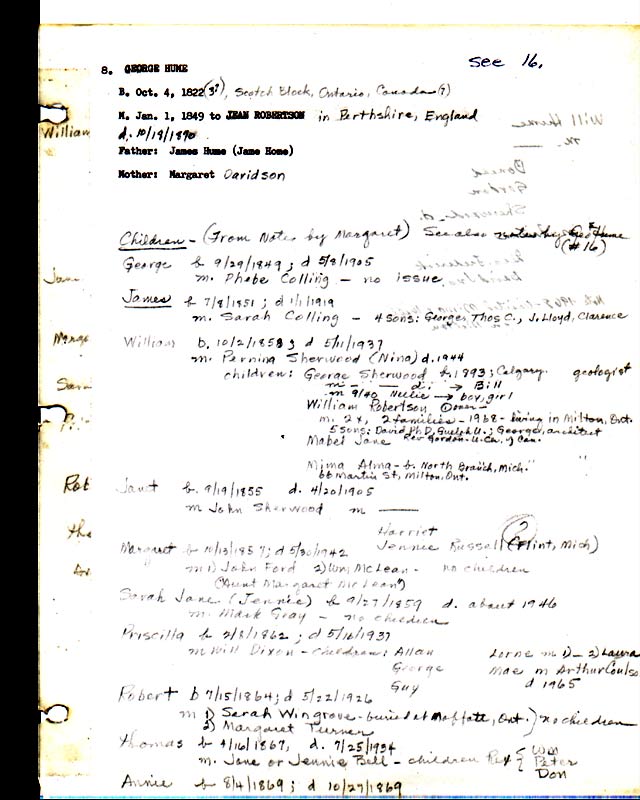 see 16.
8. GEORGE HUME
B. Oct. 4, 1822 (3?), Scotch Block, Ontario, Canada (?)
M. Jan. 1, 1849 to JEAN ROBERTSON in Perthshire, England
d. 10/19/1890
Father: James Hume (Jame Home)
Mother: Margaret Davidson
Children - (From Notes by Margaret) See also notes by Geo Hume
(#16)
George b 9/29/1849; d 5/8/1905
m. Phebe Colling - no issue
James b 7/8/1851; d 1/1/1919
m. Sarah Colling - 4 sons: George, Thos C., J. Lloyd, Clarence
William b. 10/2/1853; d 5/11/1937
m. Pernina Sherwood (Nina) d. 1944
children: George Sherwood b. 1893; Calgary. geologist
m - — d. → Bill
m 9/40 Nellie → boy, girl
William Robertson
m. 2x, 2 families - 1968 - living in Milton, Ont.
5 sons: David, Ph D, Guelph U.; George, architect
Mabel Jane Rev Gordon - U. Ch. of Can.
Mima Alma - b. North Branch, Mich. " "
66 Martin St, Milton, Ont.
Janet b 9/19/1855 d. 4/20/1905
m John Sherwood m —
Harriet
Jennie Russell (Flint, Mich) ?
Margaret b 10/13/1857; d 5/30/1942
m 1) John Ford 2) Wm McLean - no children
("Aunt Margaret McLean")
Sarah Jane (Jennie) b 9/27/1859 d. about 1946
m. Mark Gray - no children
Priscilla b 2/8/1862; d 5/16/1937
m Will Dixon - children: Allan Lorne m 1) - 2) Laura
George Mae m Arthur Coulso
Guy d 1965
Robert b 7/15/1864; d 5/22/1926
m 1) Sarah Wingrove - buried at Moffatt, Ont. } no children
2) Margaret Turner
Thomas b 4/16/1867, d. 7/25/1934
m. Jane or Jennie Bell - children Rex { Wm
Peter
Don
Annie b 8/4/1869; d 10/27/1869